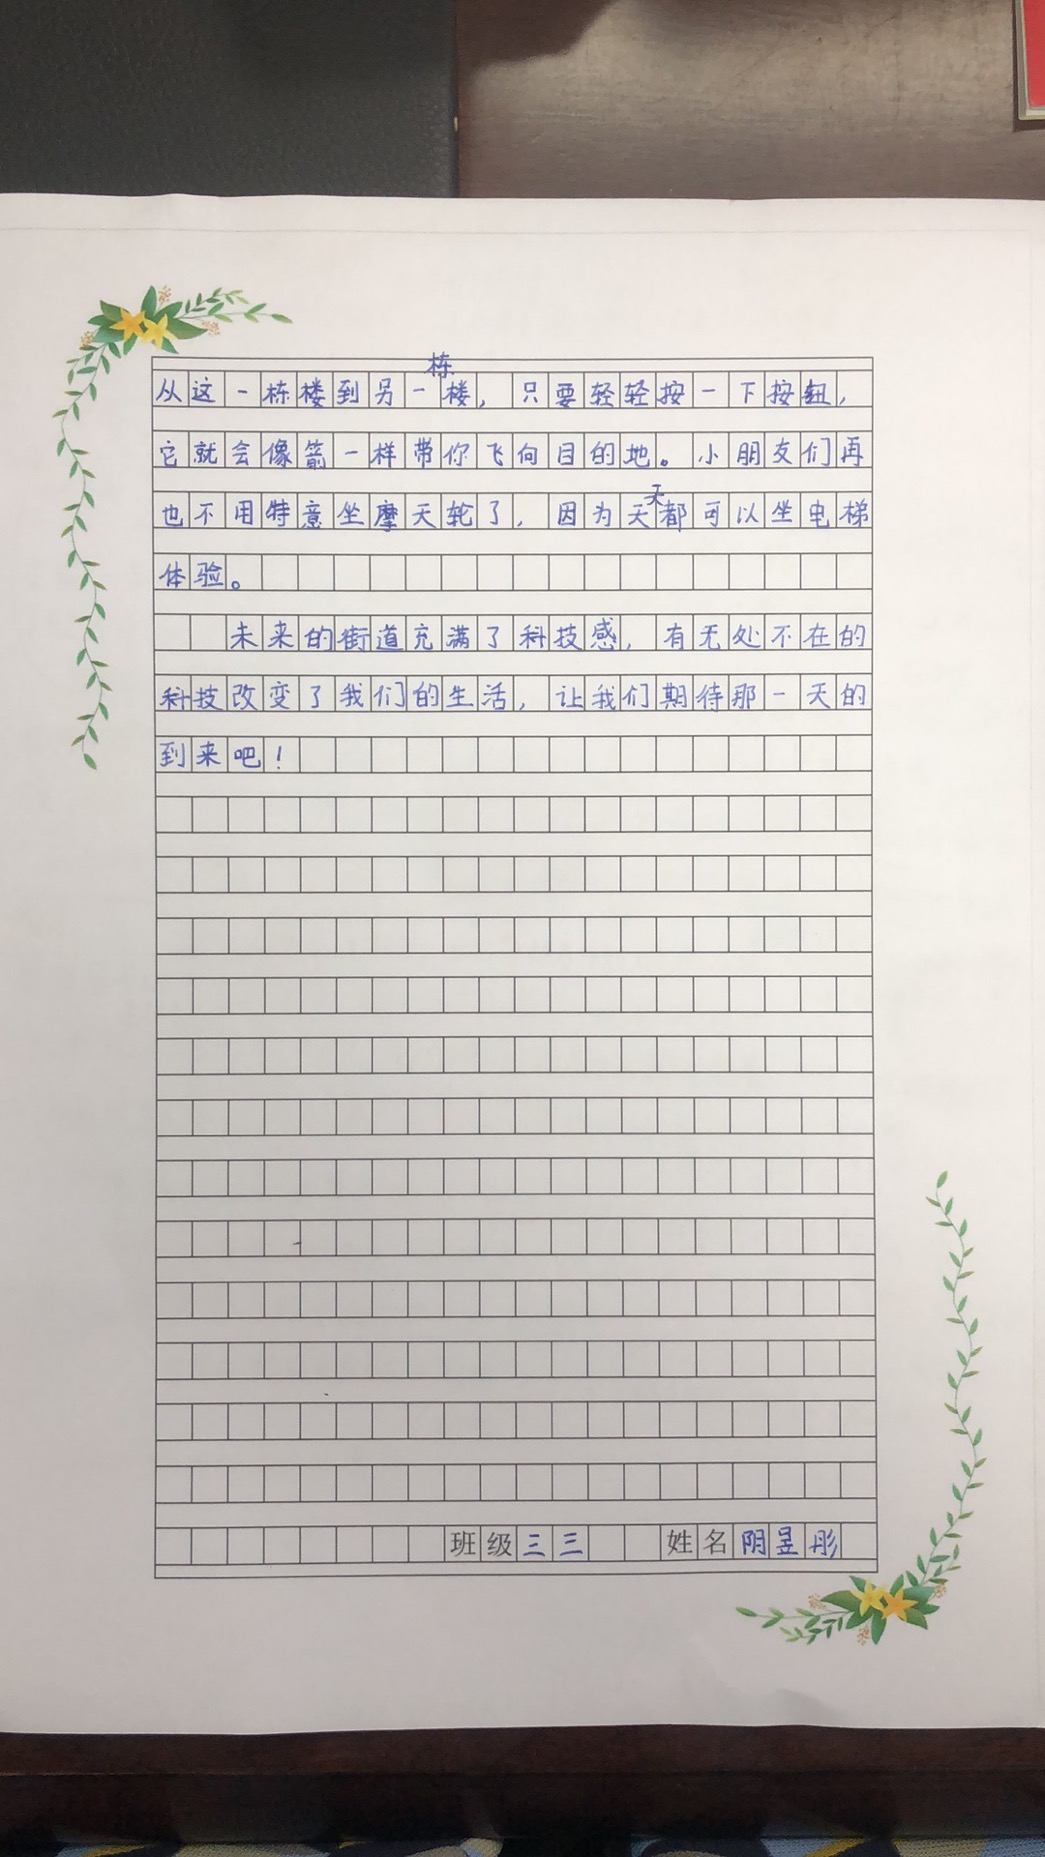 从这一栋楼到另一栋楼，只要轻轻按一下按钮，
它就会像箭一样带你飞向目的地。小朋友们再
也不用特意坐摩天轮了，因为天天都可以坐电梯
体验。
未来的街道充满了科技感，有无处不在的
科技改变了我们的生活，让我们期待那一天的
到来吧！
班级三三 姓名阴昱彤